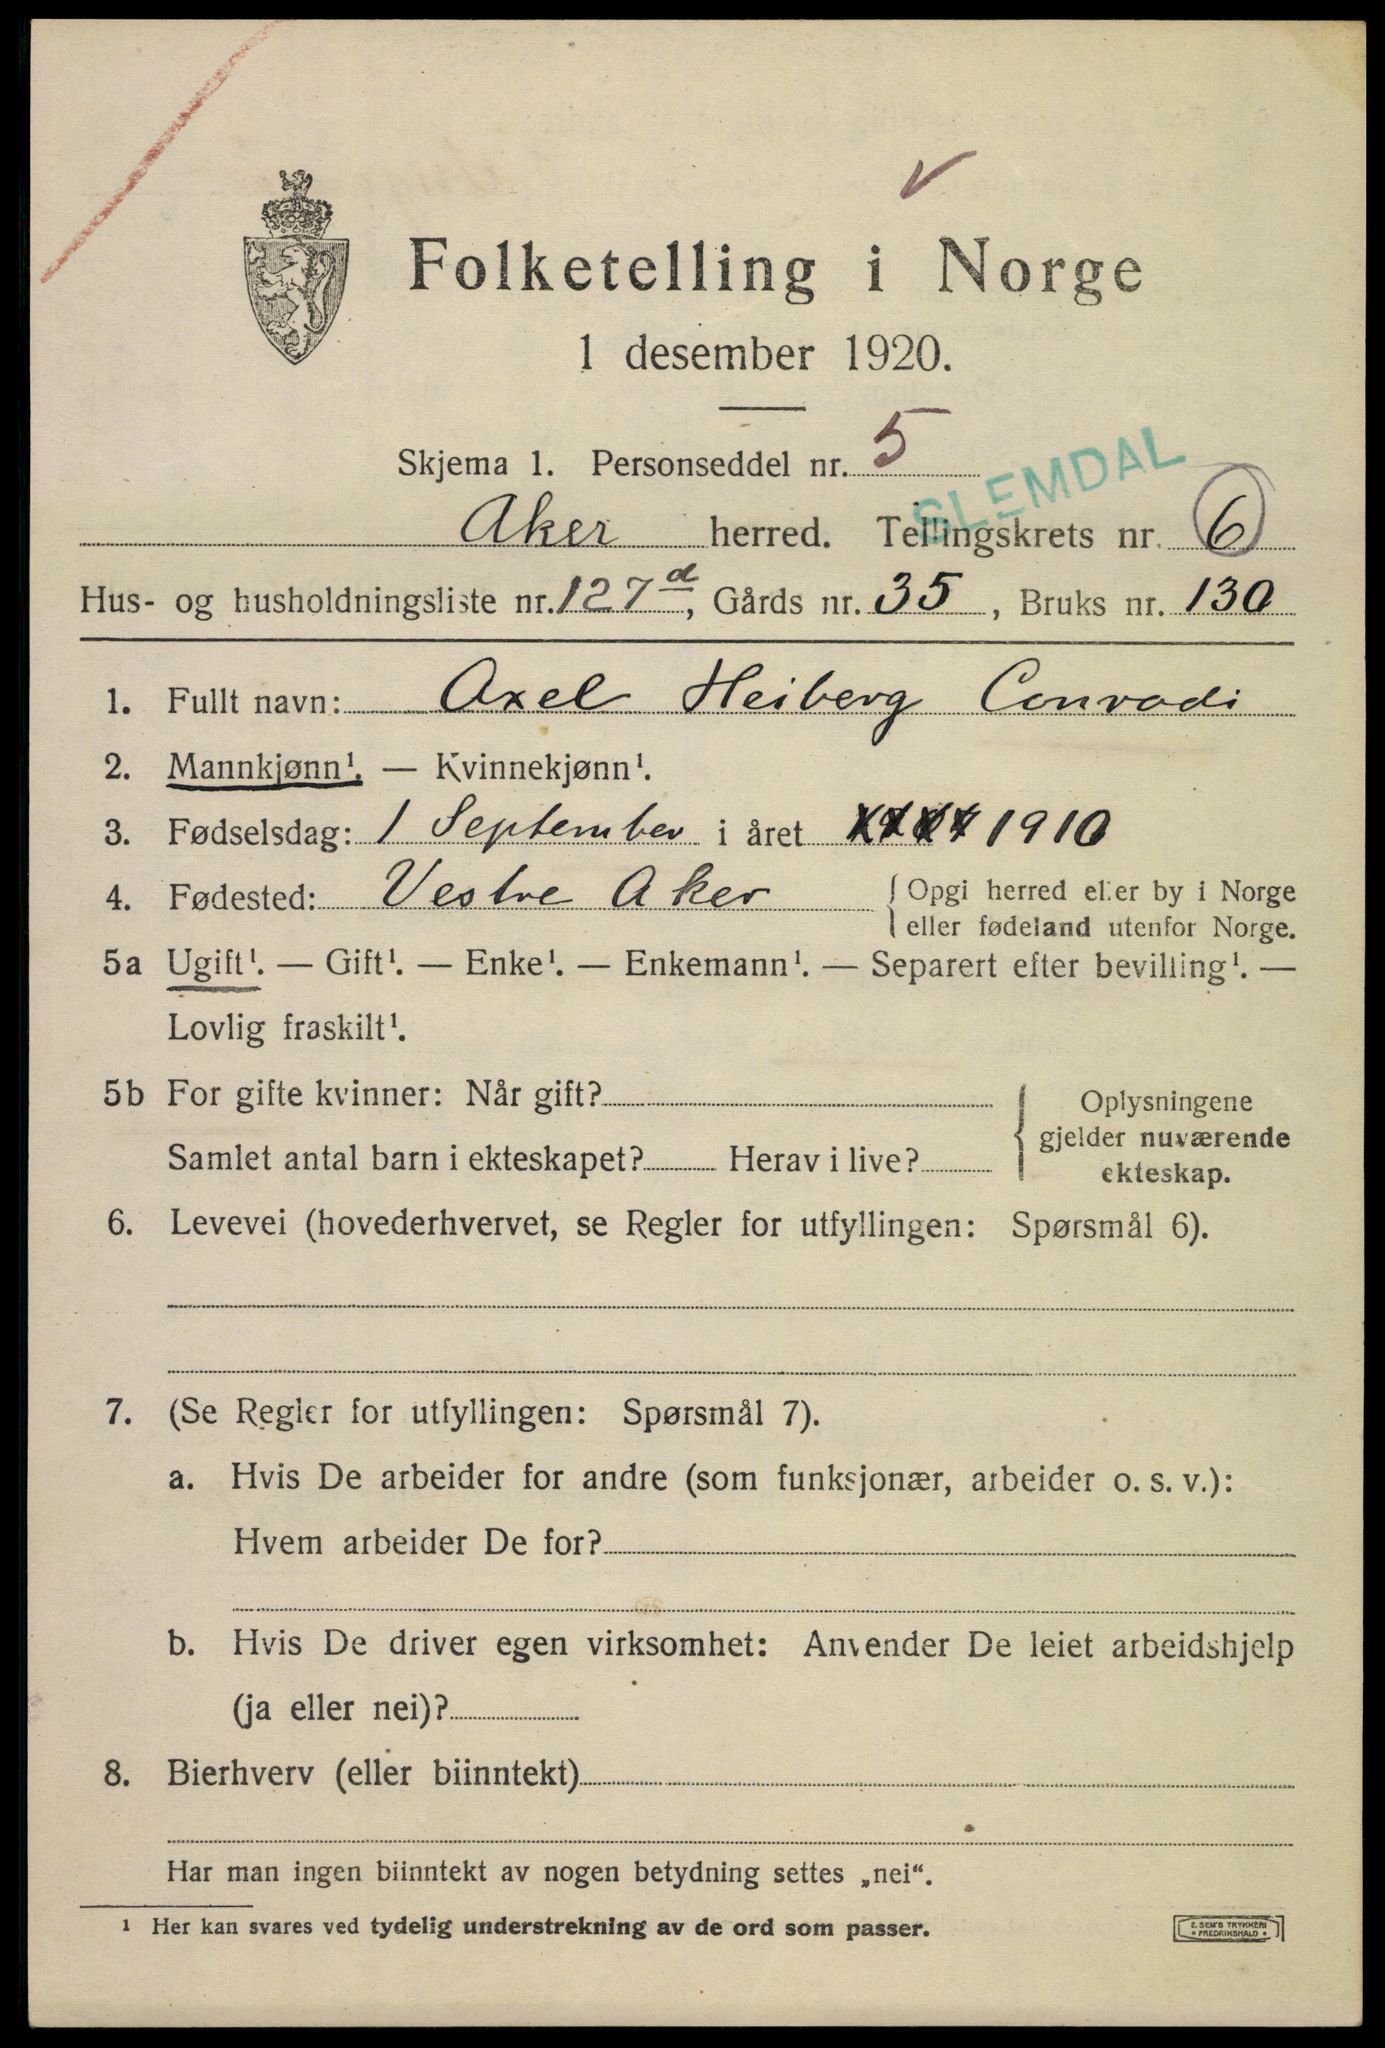 Folketelling i Norge
1 desember 1920.
Skjema 1. Personseddel nr. 5
SLEMDAL
Aker herred. Tellingskrets nr. 6
Hus- og husholdningsliste nr. 127d, Gårds nr. 35, Bruks nr. 130
1. Fullt navn: Axel Heiberg Conradi
2. Mannkjønn¹. — Kvinnekjønn¹.
3. Fødselsdag: 1 September i året 1910
4. Fødested: Vestre Aker { Opgi herred eller by i Norge
eller fødeland utenfor Norge.
5a Ugift¹. — Gift¹. — Enke¹. — Enkemann¹. — Separert efter bevilling¹. —
Lovlig fraskilt¹.
5b For gifte kvinner: Når gift?
Samlet antal barn i ekteskapet? Herav i live?
{ Oplysningene
gjelder nuværende
ekteskap.
6. Levevei (hovederhvervet, se Regler for utfyllingen: Spørsmål 6).
7. (Se Regler for utfyllingen: Spørsmål 7).
a. Hvis De arbeider for andre (som funksjonær, arbeider o. s. v.):
Hvem arbeider De for?
b. Hvis De driver egen virksomhet: Anvender De leiet arbeidshjelp
(ja eller nei)?
8. Bierhverv (eller biinntekt)
Har man ingen biinntekt av nogen betydning settes „nei“.
¹ Her kan svares ved tydelig understrekning av de ord som passer.
E. SEM'S TRYKKERI
• FREDRIKSHALD •